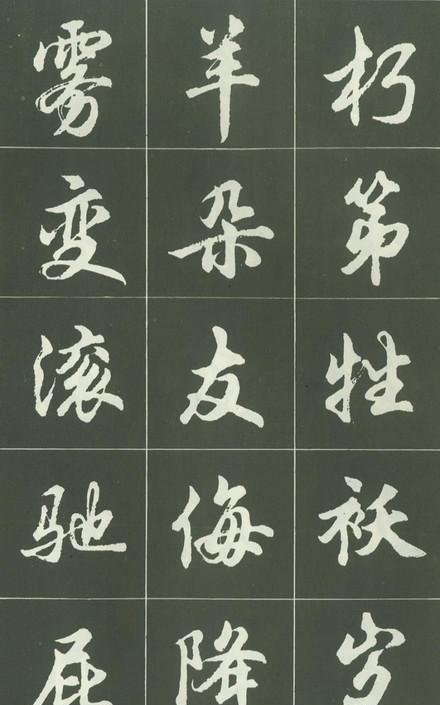 朽第牲袄岁
羊朵友侮降
雾变滚驰